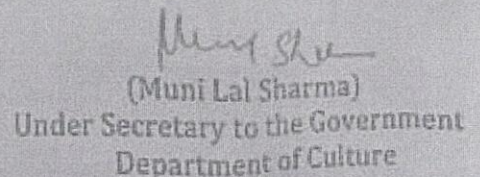 (Muni Lal Sharma)
Under Secretary to the Government
Department of Culture